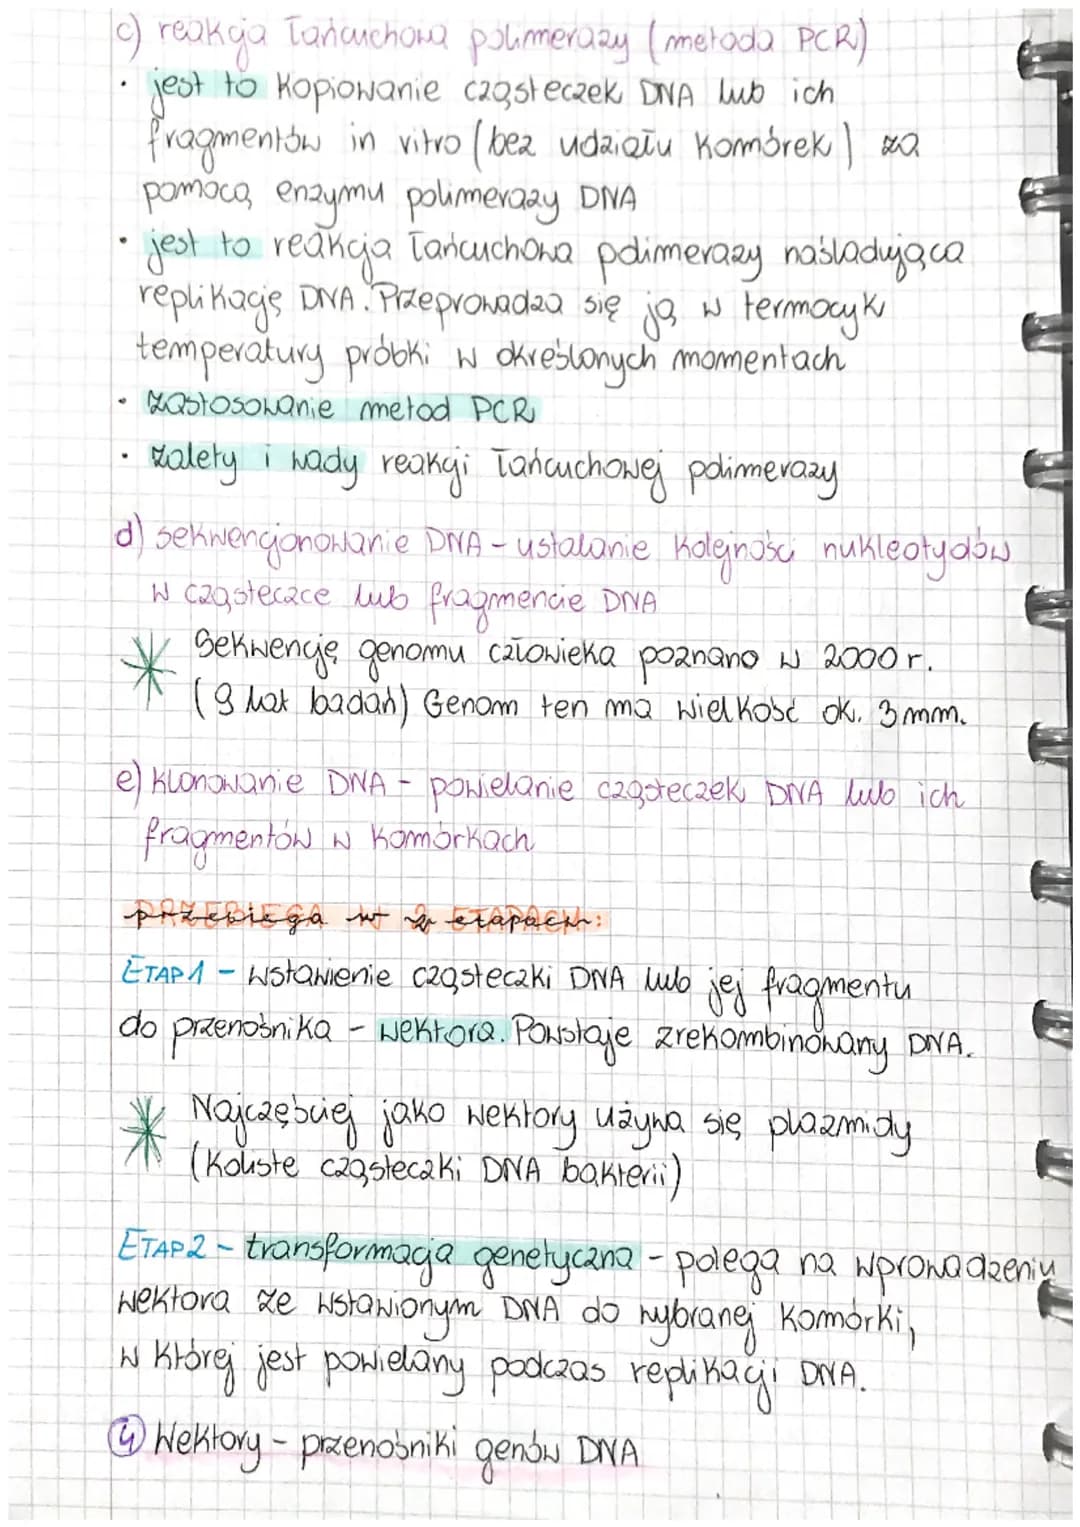 c) reakcja łańcuchowa polimerazy (metoda PCR)
• jest to kopiowanie cząsteczek DNA lub ich
fragmentów in vitro (bez udziału komórek) za
pomocą enzymu polimerazy DNA
• jest to reakcja łańcuchowa polimerazy naśladująca
replikację DNA. Przeprowadza się ją w termocyk
temperatury próbki w określonych momentach
• zastosowanie metod PCR
• zalety i wady reakcji łańcuchowej polimerazy
d) sekwencjonowanie DNA - ustalanie kolejności nukleotydów
w cząsteczce lub fragmencie DNA
Sekwencję genomu człowieka poznano w 2000 r.
(9 lat badań) Genom ten ma wielkość ok. 3mm.
e) klonowanie DNA - powielanie cząsteczek DNA lub ich
fragmentów w komórkach
przebiega w 2 etapach:
ETAP 1 - wstawienie cząsteczki DNA lub jej fragmentu
do przenośnika - wektora. Powstaje zrekombinowany DNA.
Najczęściej jako wektory używa się plazmidy
(koliste cząsteczki DNA bakterii)
ETAP 2 - transformacja genetyczna - polega na wprowadzeniu
wektora ze wstawionym DNA do wybranej komórki,
w której jest powielany podczas replikacji DNA.
4 Wektory - przenośniki genów DNA